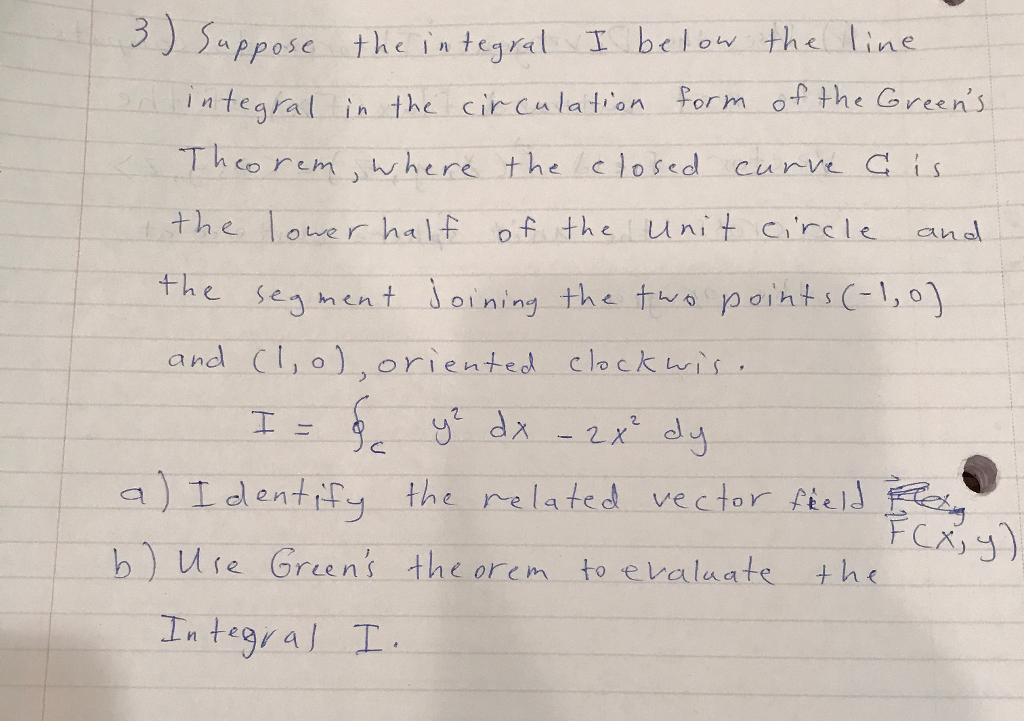 3) Suppose the integral I below the line
integral in the circulation form of the Green's
Theorem, where the closed curve C is
the lower half of the unit circle and
the segment Joining the two points (-1,0)
and (1,0), oriented clockwis.
I = ∮c y² dx - 2x² dy
a) Identify the related vector field
F⃗(x,y)
b) Use Green's theorem to evaluate the
Integral I.